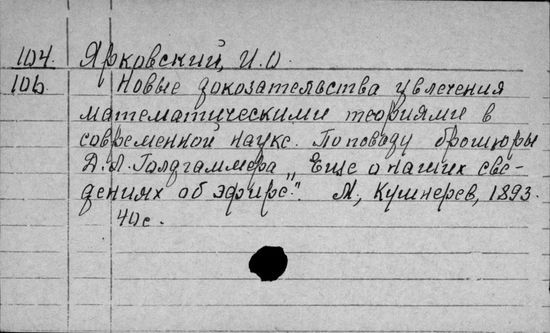 104. Ярковский, И.О.
106 Новые доказательства увлечения
математическими теориями в
современной науке. По поводу брошюры
Д.А. Голдгаммера „Еще о наших све-
дениях об эфире". М., Кушнерев, 1893.
40с.